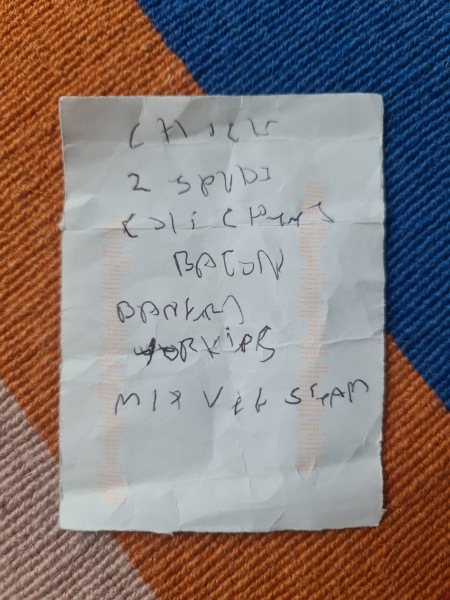 CHICK
2 SPUDS
COLI CHEES
BACON
BANKNS
YORKIES
MIX VEG STEAM